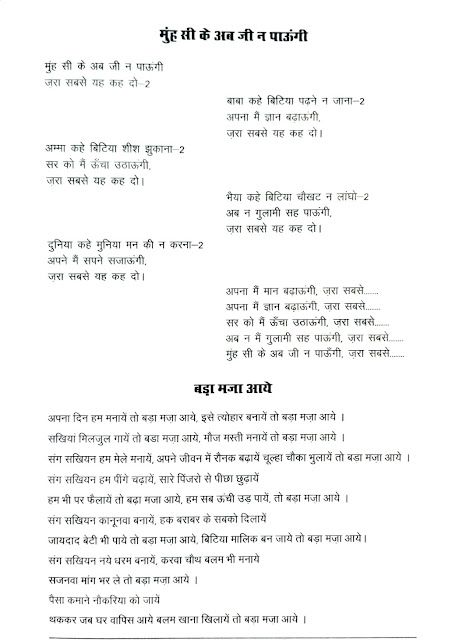 मुंह सी के अब जी न पाऊंगी
मुंह सी के अब जी न पाऊंगी
ज़रा सबसे यह कह दो–2
बाबा कहे बिटिया पढ़ने न जाना–2
अपना मैं ज्ञान बढ़ाऊंगी,
ज़रा सबसे यह कह दो।
अम्मा कहे बिटिया शीश झुकाना–2
सर को मैं ऊँचा उठाऊंगी,
ज़रा सबसे यह कह दो।
भैया कहे बिटिया चौखट न लांघो–2
अब न गुलामी सह पाऊंगी,
ज़रा सबसे यह कह दो।
दुनिया कहे मुनिया मन की न करना–2
अपने मैं सपने सजाऊंगी,
ज़रा सबसे यह कह दो।
अपना मैं मान बढ़ाऊंगी, ज़रा सबसे.......
अपना मैं ज्ञान बढ़ाऊंगी, ज़रा सबसे.......
सर को मैं ऊँचा उठाऊंगी, ज़रा सबसे.......
अब न मैं गुलामी सह पाऊंगी, ज़रा सबसे.......
मुंह सी के अब जी न पाऊँगी, ज़रा सबसे.......
बड़ा मजा आये
अपना दिन हम मनायें तो बडा मज़ा आये, इसे त्योहार बनायें तो बड़ा मज़ा आये ।
सखियां मिलजुल गायें तो बडा मज़ा आये, मौज मस्ती मनायें तो बड़ा मज़ा आये ।
संग सखियन हम मेले मनायें, अपने जीवन में रौनक बढ़ायें चूल्हा चौका भुलायें तो बड़ा मजा आये ।
संग सखियन हम पींगे चढ़ायें, सारे पिंजरो से पीछा छुढायें
हम भी पर फैलायें तो बढ़ा मजा आये, हम सब ऊंची उड़ पायें, तो बड़ा मज़ा आये ।
संग सखियन कानूनवा बनायें, हक बराबर के सबको दिलायें
जायदाद बेटी भी पाये तो बड़ा मज़ा आये, बिटिया मालिक बन जाये तो बड़ा मज़ा आये।
संग सखियन नये धरम बनायें, करवा चौथ बलम भी मनाये
सजनवा मांग भर ले तो बड़ा मज़ा आये ।
पैसा कमाने नौकरिया को जायें
थककर जब घर वापिस आये बलम खाना खिलायें तो बड़ा मज़ा आये ।